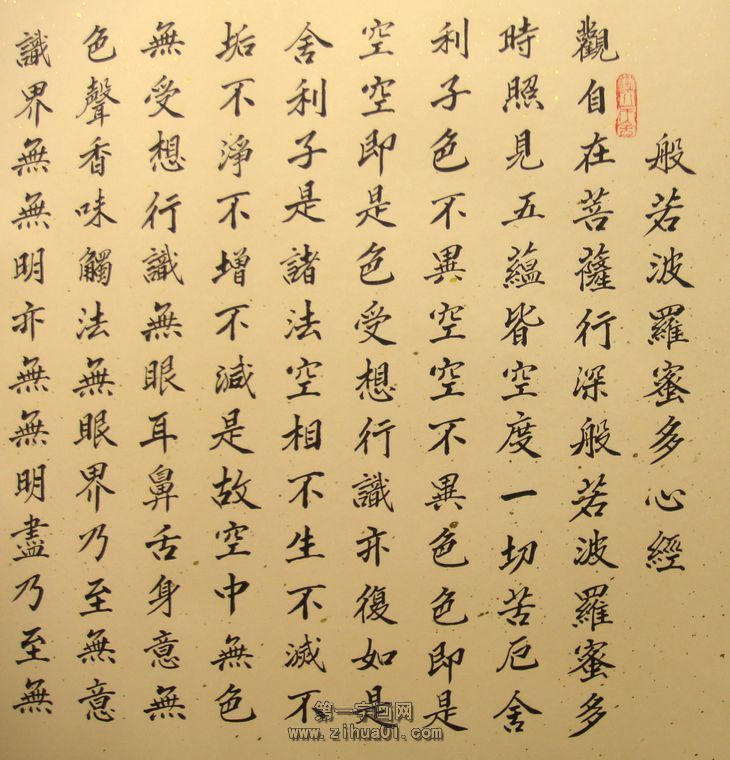 般若波羅蜜多心經
觀自在菩薩行深般若波羅蜜多
時照見五蘊皆空度一切苦厄舍
利子色不異空空不異色色即是
空空即是色受想行識亦復如是
舍利子是諸法空相不生不滅不
垢不淨不增不減是故空中無色
無受想行識無眼耳鼻舌身意無
色聲香味觸法無眼界乃至無意
識界無無明亦無無明盡乃至無
第一字画网
www.zihua01.com